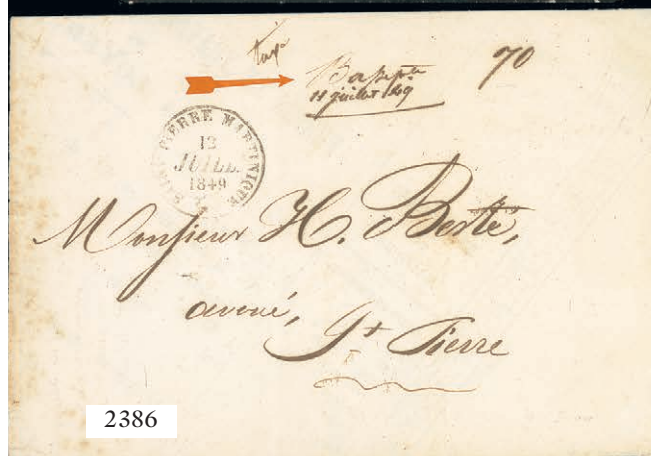 taxe
70
11 juillet 1849
SAINT PIERRE MARTINIQUE
12
JUILL.
1849
Monsieur H. Berté,
avoué,
St Pierre
2386